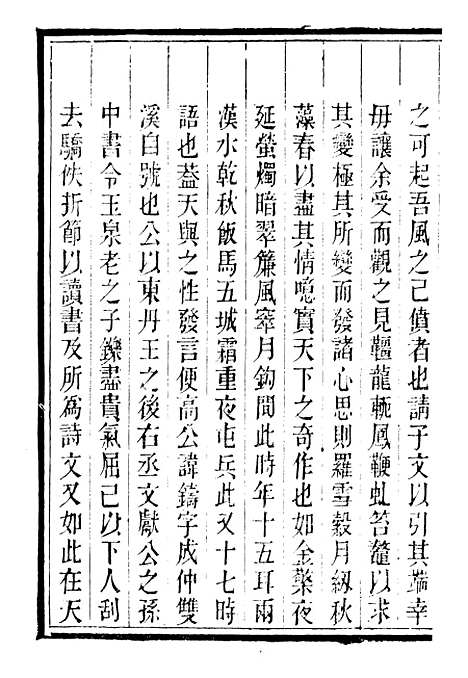 之可起吾風之已僨者也請子文以引其端幸
毋讓余受而觀之見韁龍軛鳳鞭虬笞鼇以求
其變極其所變而發諸心思則羅雪縠月紉秋
藻春以盡其情噫實天下之奇作也如金蘂夜
延螢燭暗翠簾風窣月鈎間此時年十五耳兩
漢水乾秋飯馬五城霜重夜屯兵此又十七時
語也葢天與之性發言便高公諱鑄字成仲雙
溪自號也公以東丹王之後右丞文獻公之孫
中書令玉泉老之子鑠盡貴氣屈己以下人刮
去驕佚折節以讀書及所爲詩文又如此在天